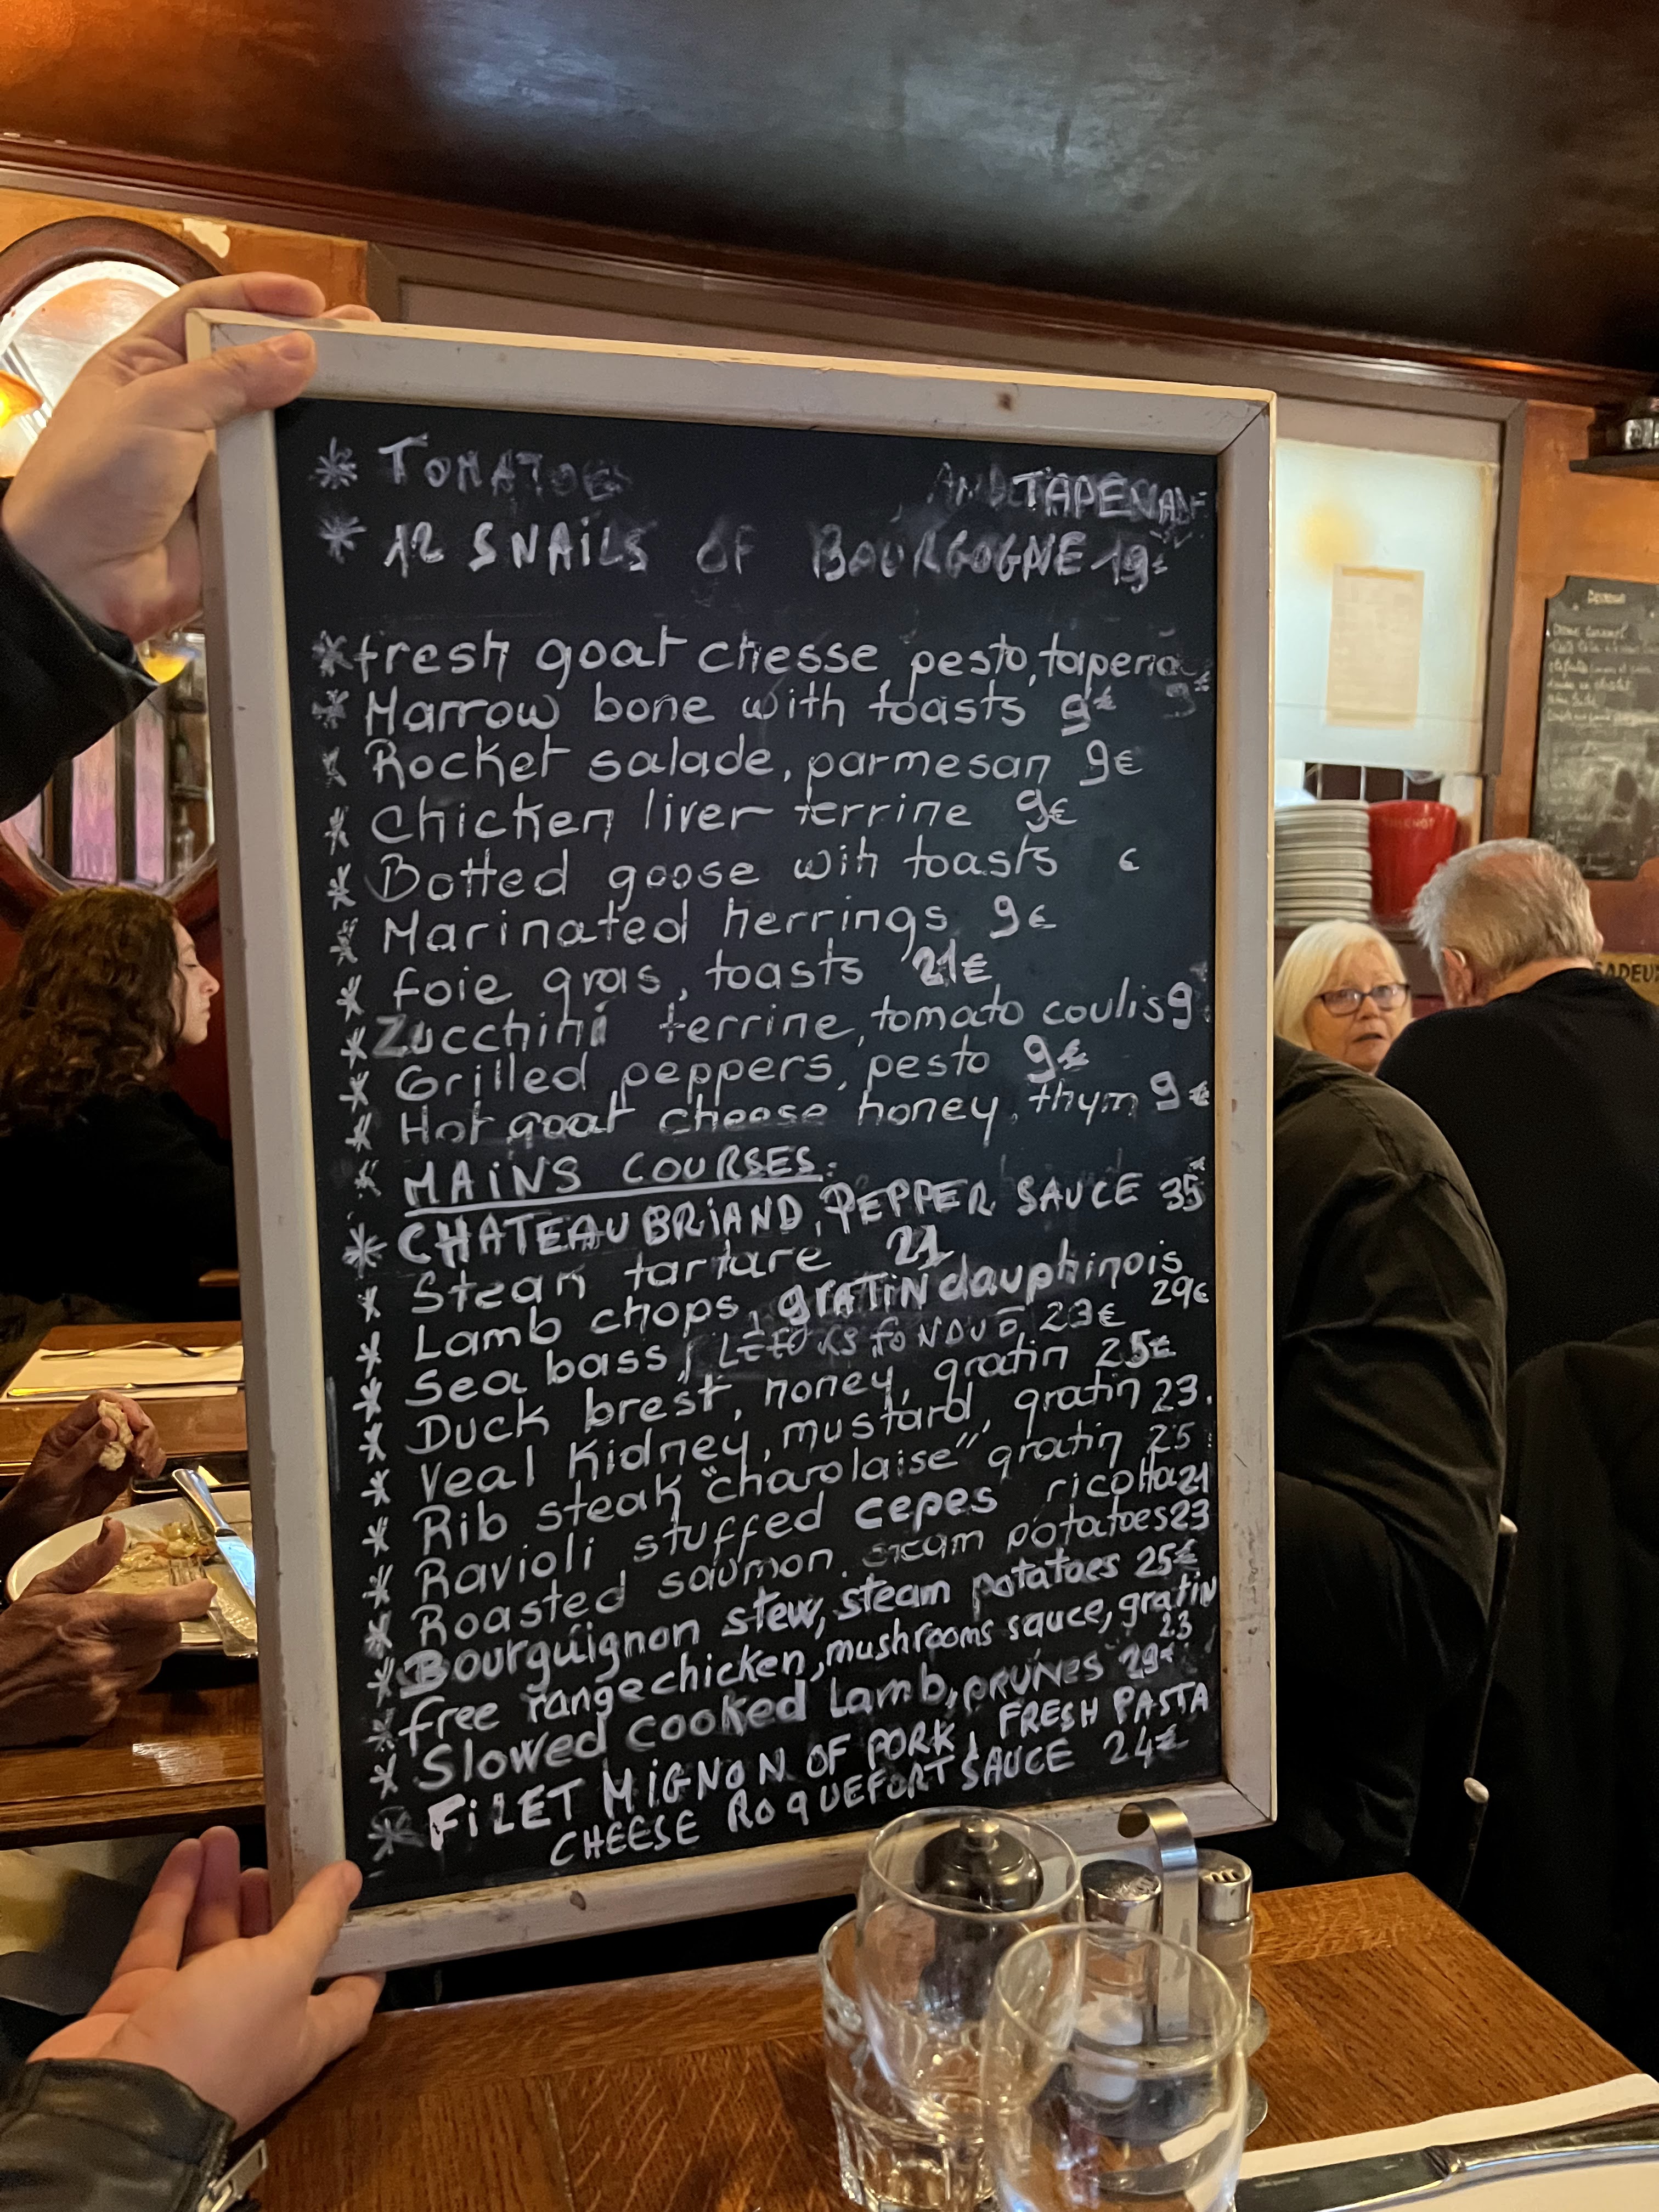 * TOMATOE AND TAPENADE
* 12 SNAILS OF BOURGOGNE 19€
* fresh goat chesse, pesto, tapena
9€
* Marrow bone with toasts 9€
* Rocket salade, parmesan 9€
* Chicken liver terrine 9€
* Botted goose wih toasts €
* Marinated herrings 9€
* foie gras, toasts 21€
* Zucchini terrine, tomato coulis 9
* Grilled peppers, pesto 9€
* Hot goat cheese honey, thym 9€
* MAINS COURSES:
* CHATEAUBRIAND, PEPPER SAUCE 35
* Steak tartare 21
* Lamb chops, gRATIN dauphinois
29€
* Sea bass, 23€
* Duck brest, honey, gratin 25€
* Veal kidney, mustard, gratin 23.
* Rib steak "charolaise" gratin 25
* Ravioli stuffed cepes ricotta 21
* Roasted saumon. potatoes 23
* Bourguignon stew, steam potatoes 25€
* free range chicken, mushrooms sauce, gratin
23
* Slowed cooked Lamb, PRUNES 29€
* FILET MIGNON OF PORK, FRESH PASTA
CHEESE ROQUEFORT SAUCE 24€